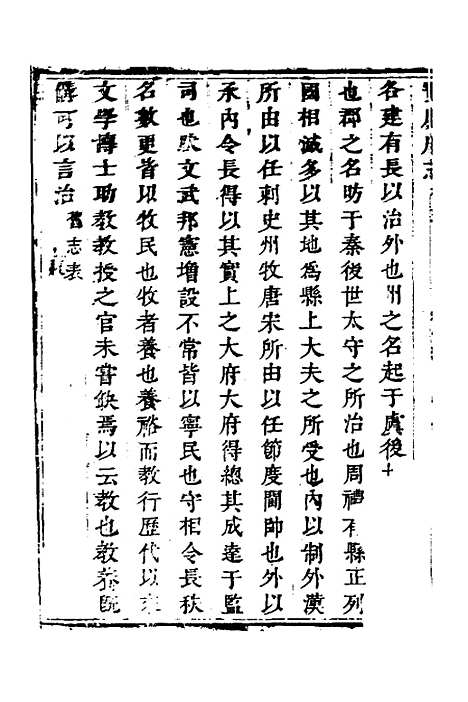 各建有長以治外也州之名起于虞後十
也郡之名昉于秦後世太守之所治也周禮有縣正列
國相滅多以其地爲縣上大夫之所受也內以制外漢
所由以任刺史州牧唐宋所由以任節度閫帥也外以
承內令長得以其實上之大府大府得總其成達于監
司也歟文武邦憲增設不常皆以寧民也守相令長秩
名數更皆以牧民也牧者養也養裕而教行歷代以來
文學博士助教教授之官未嘗缺焉以云教也教養旣
備可以言治舊志表